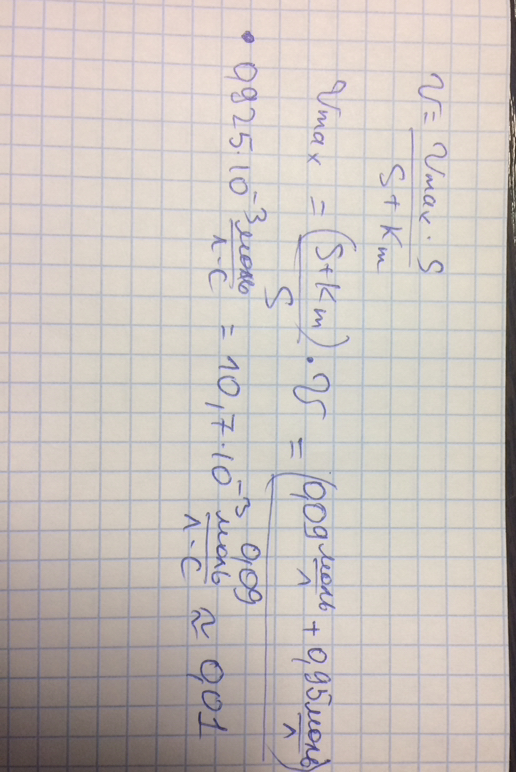 V = Vmax · S / S + Km
Vmax = (S + Km) / S · V = (0,09 моль/л + 0,95 моль/л) / 0,09
· 0,925 · 10⁻³ моль/л·с = 10,7 · 10⁻³ моль/л·с ≈ 0,01